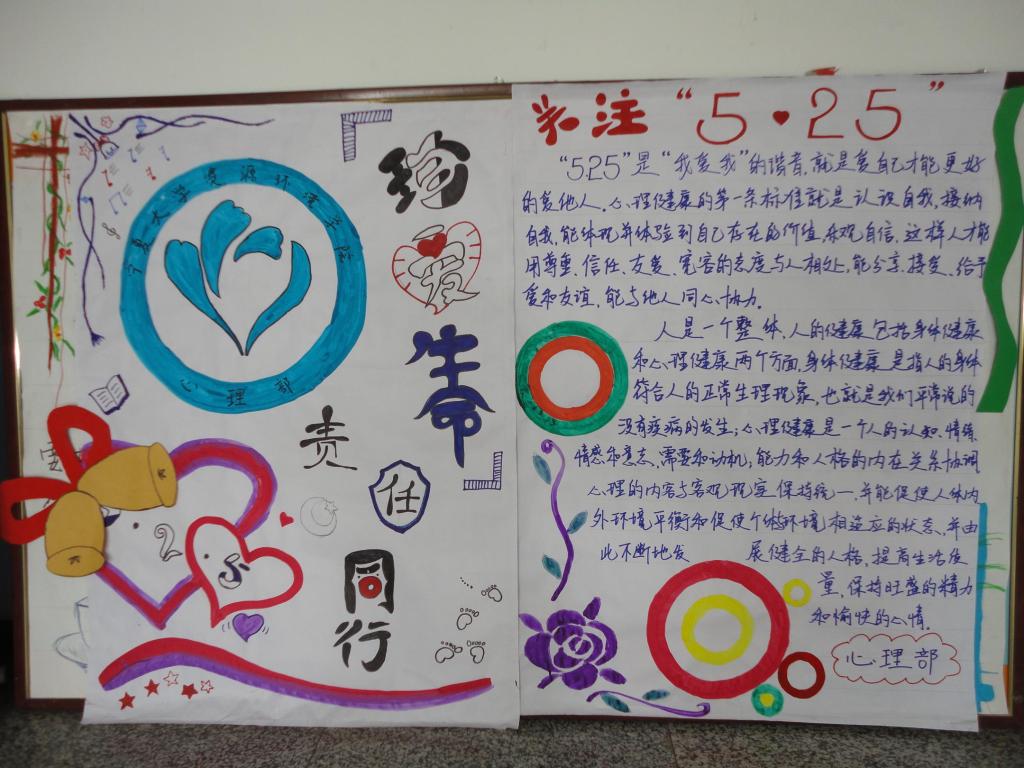 宁夏大学资源环境学院
心理部
珍爱
生命
责
任
同
行
2
5
关注“5·25”
“5.25”是“我爱我”的谐音,就是爱自己才能更好
的爱他人。心理健康的第一条标准就是认识自我,接纳
自我,能体现并体验到自己存在的价值,乐观自信,这样人才能
用尊重、信任、友爱、宽容的态度与人相处,能分享、接受、给予
爱和友谊,能与他人同心协力。
人是一个整体,人的健康包括身体健康
和心理健康两个方面,身体健康是指人的身体
符合人的正常生理现象,也就是我们平常说的
没有疾病的发生;心理健康是一个人的认知、情绪、
情感和意志、需要和动机,能力和人格的内在关系协调
心理的内容与客观现实保持统一,并能促使人体内
外环境平衡和促使个体环境相适应的状态,并由
此不断地发展健全的人格,提高生活质
量,保持旺盛的精力
和愉快的心情。
心理部